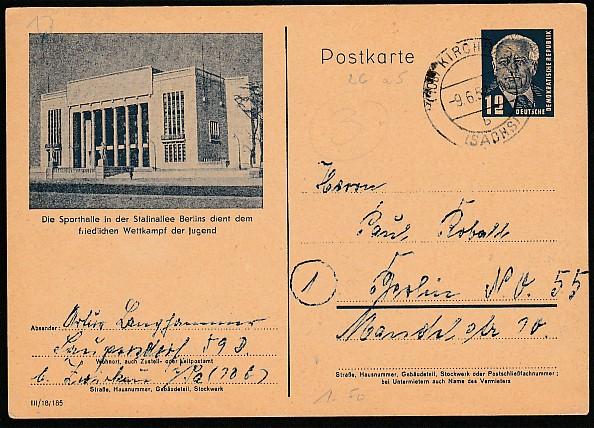 17
Postkarte
26 a5
12
DEUTSCHE
DEMOKRATISCHE REPUBLIK
KIRCH
-9.6.5
b
(SACHS)
Die Sporthalle in der Stalinallee Berlins dient dem
friedlichen Wettkampf der Jugend
Herrn
Paul Kobalt
1
Berlin NO. 55
Mandelstr 90.
Absender: Artur Langhammer
Wohnort, auch Zustell- oder Leitpostamt
b. Zwickau
Straße, Hausnummer, Gebäudeteil, Stockwerk
Straße, Hausnummer, Gebäudeteil, Stockwerk oder Postschließfachnummer;
bei Untermietern auch Name des Vermieters
III/18/185